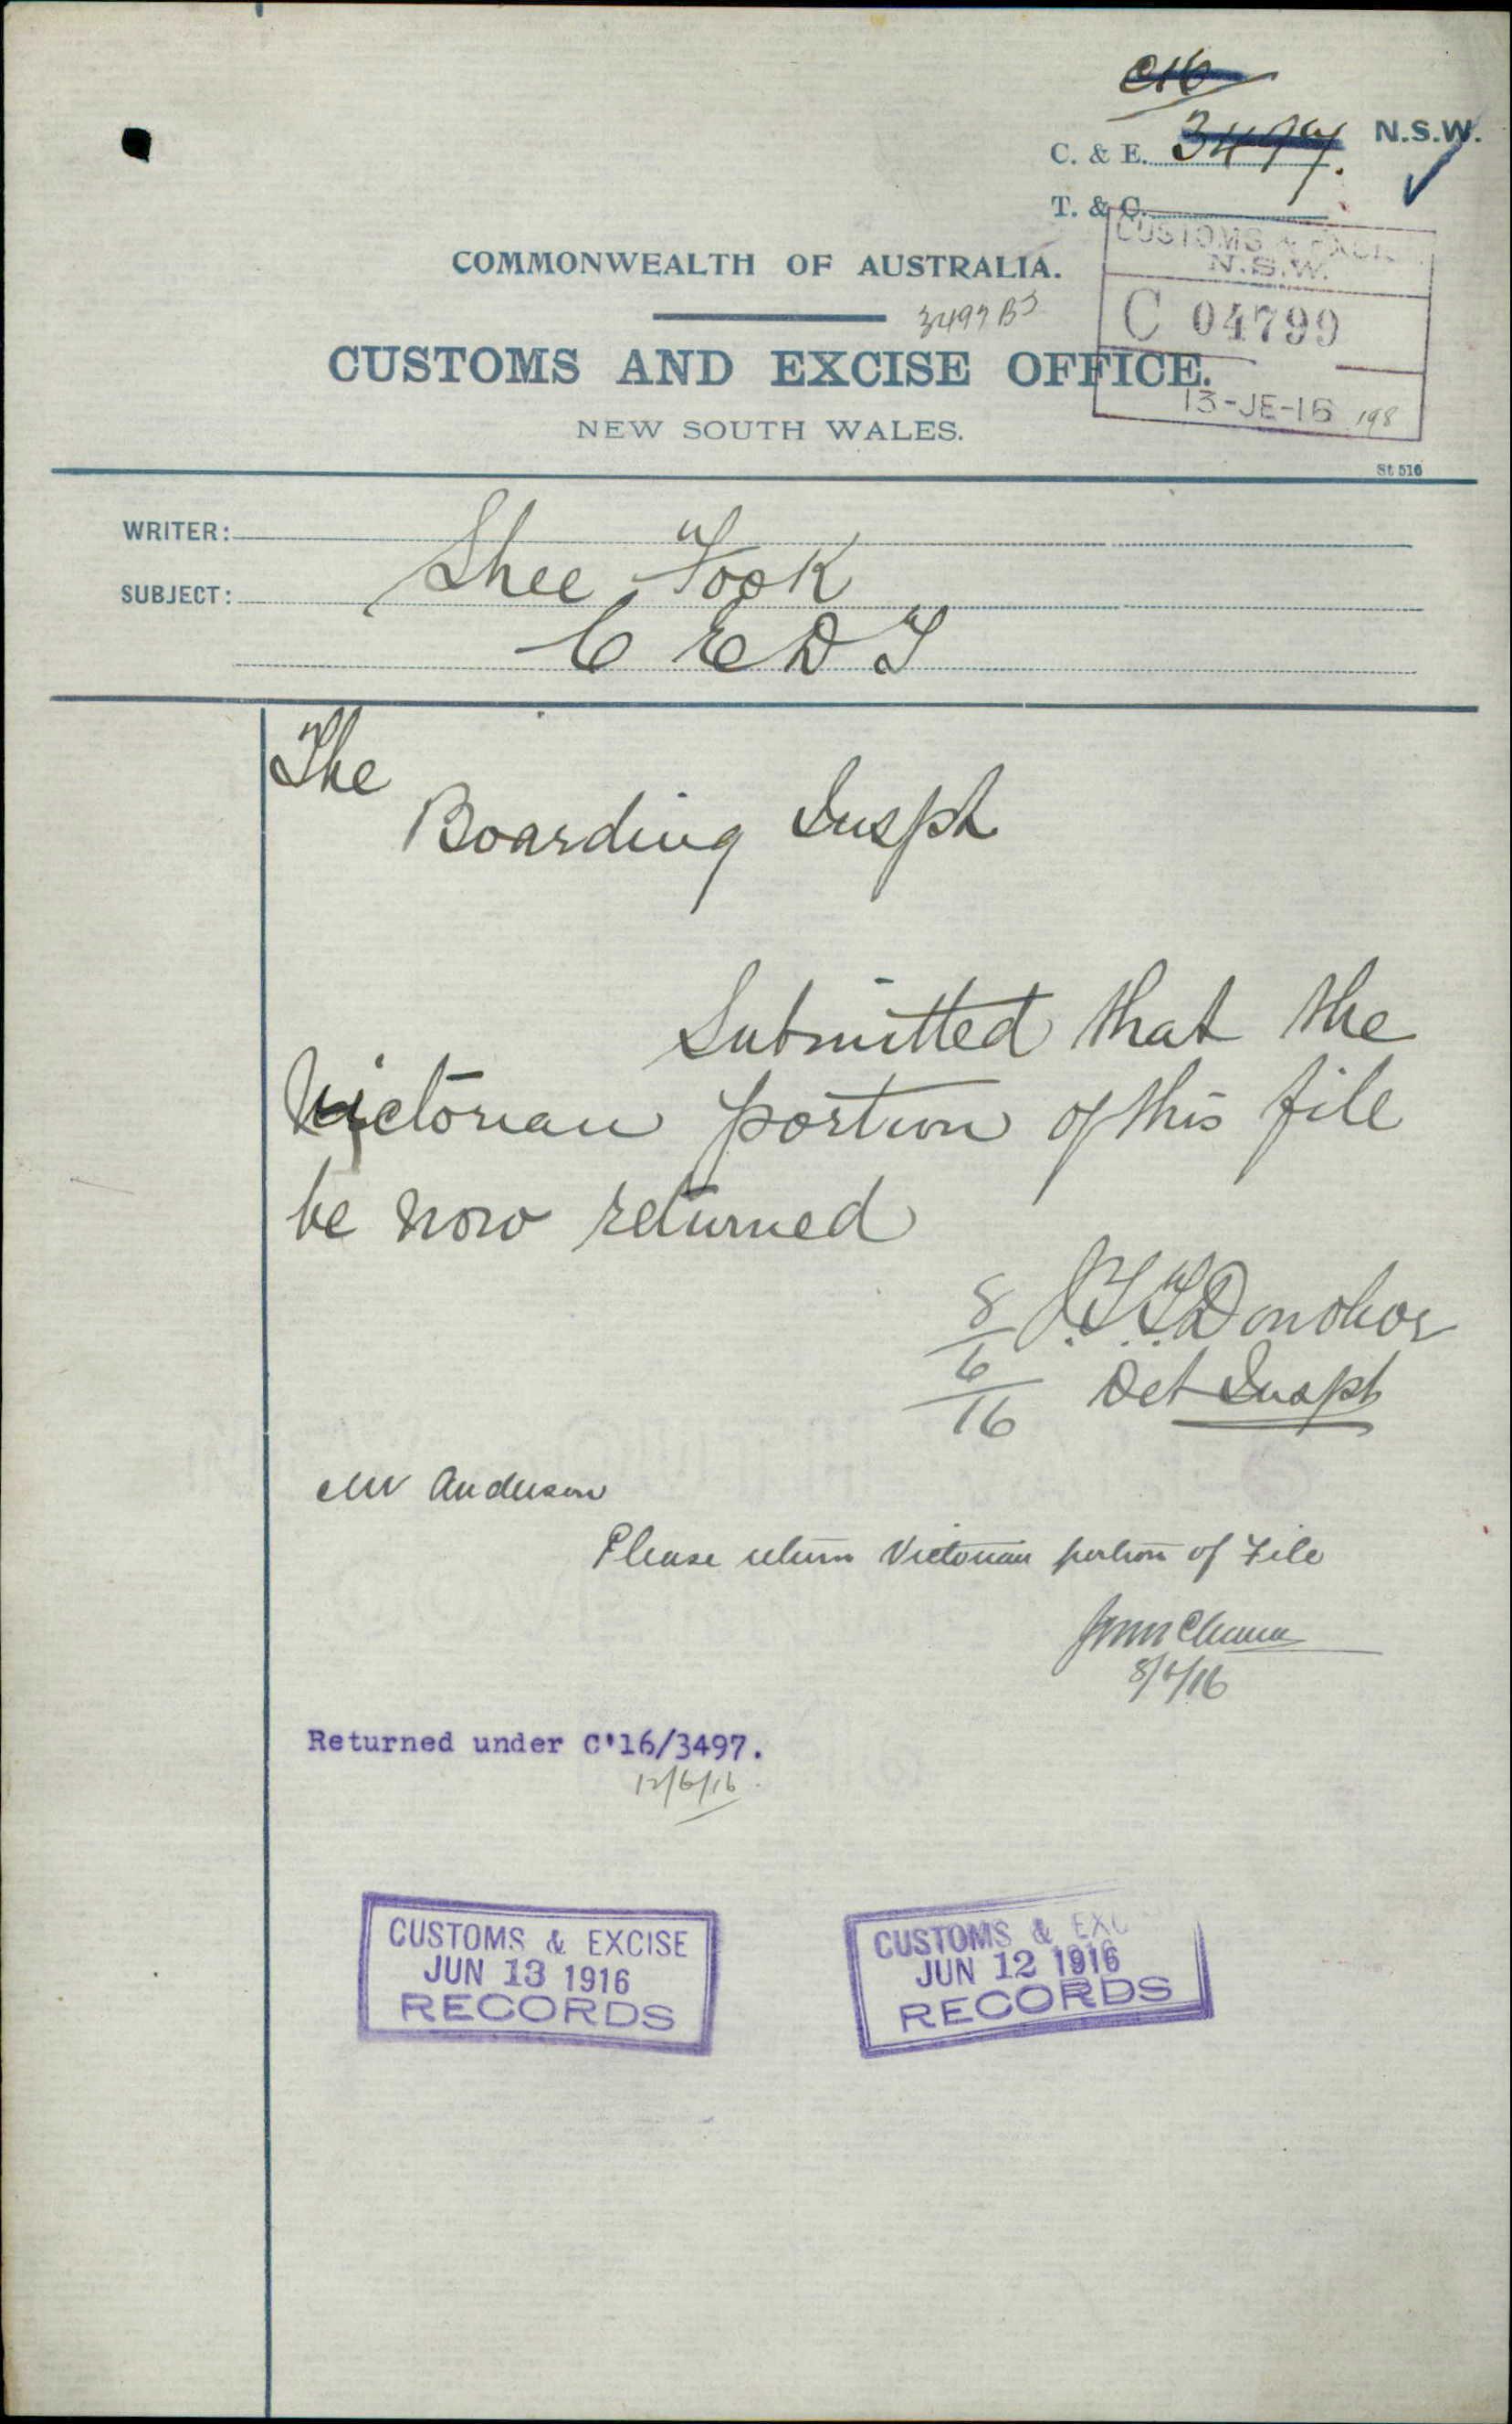 C16
C. & E. 3497. N.S.W.
T. & C.
CUSTOMS & EXCISE
N.S.W.
C 04799
13-JE-16 198
COMMONWEALTH OF AUSTRALIA.
3497 B5
CUSTOMS AND EXCISE OFFICE.
NEW SOUTH WALES.
St 516
WRITER:
Shee Fook
SUBJECT:
C E D T
The
Boarding Inspr
Submitted that the
Victorian portion of this file
be now returned
8/6/16 J.T.T. Donohoe
Det Inspr
Mr Anderson
Please return Victorian portion of File
8/6/16
Returned under C'16/3497.
12/6/16
CUSTOMS & EXCISE
JUN 13 1916
RECORDS
CUSTOMS & EXC
JUN 12 1916
RECORDS